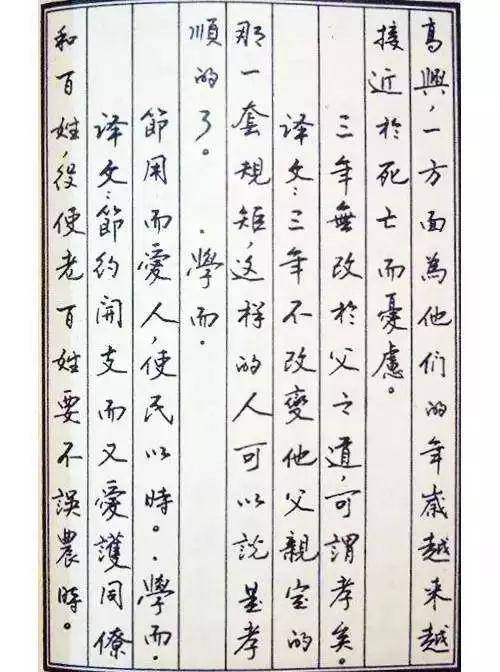 高興,一方面為他們的年歲越来越
接近於死亡而憂慮。
三年無改於父之道,可謂孝矣。
译文:三年不改變他父親定的
那一套規矩,这样的人可以说是孝
順的了。·學而·
節用而愛人,使民以時。·學而·
译文:節约開支而又愛護同僚
和百姓,役使老百姓要不误農時。